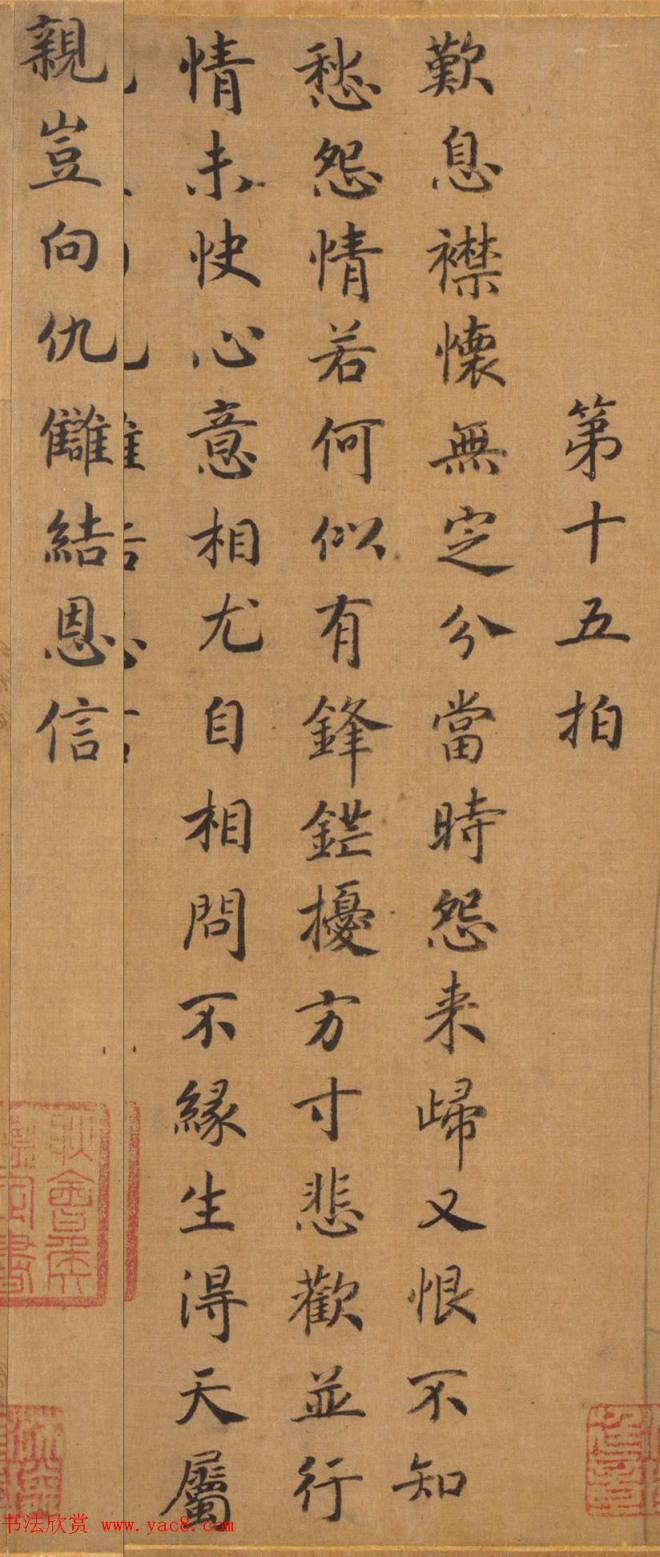 第十五拍
歎息襟懷無定分當時怨来歸又恨不知
愁怨情若何似有鋒鋩擾方寸悲歡並行
情未快心意相尤自相問不緣生得天屬
親豈向仇讎結恩信
书法欣赏 www.yac8.com